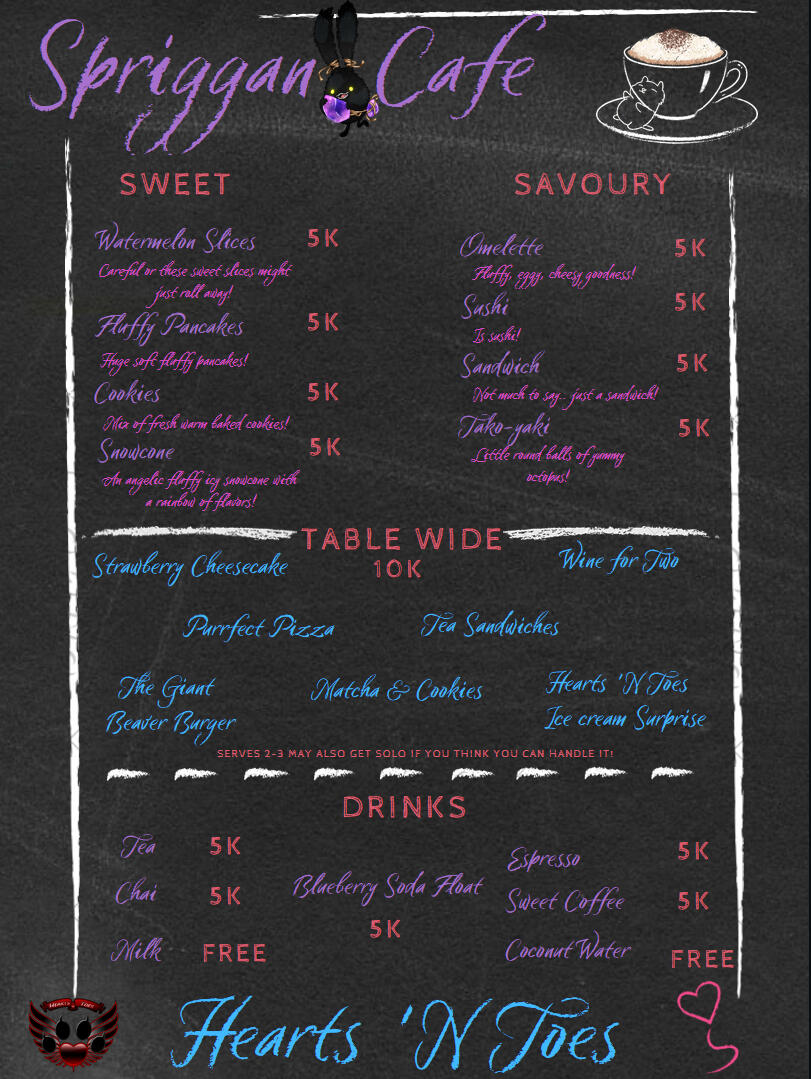 Spriggan Cafe
SWEET
Watermelon Slices 5K
Careful or these sweet slices might
just roll away!
Fluffy Pancakes 5K
Huge soft fluffy pancakes!
Cookies 5K
Mix of fresh warm baked cookies!
Snowcone 5K
An angelic fluffy icy snowcone with
a rainbow of flavors!
SAVOURY
Omelette 5K
Fluffy, eggy, cheesy goodness!
Sushi 5K
Is sushi!
Sandwich 5K
Not much to say.. just a sandwich!
Tako-yaki 5K
Little round balls of yummy
octopus!
TABLE WIDE
10K
Strawberry Cheesecake
Wine for Two
Purrfect Pizza
Tea Sandwiches
The Giant
Beaver Burger
Matcha & Cookies
Hearts 'N Toes
Ice cream Surprise
SERVES 2-3 MAY ALSO GET SOLO IF YOU THINK YOU CAN HANDLE IT!
DRINKS
Tea 5K
Chai 5K
Milk FREE
Blueberry Soda Float
5K
Espresso 5K
Sweet Coffee 5K
Coconut Water FREE
HEARTS TOES
Hearts 'N Toes